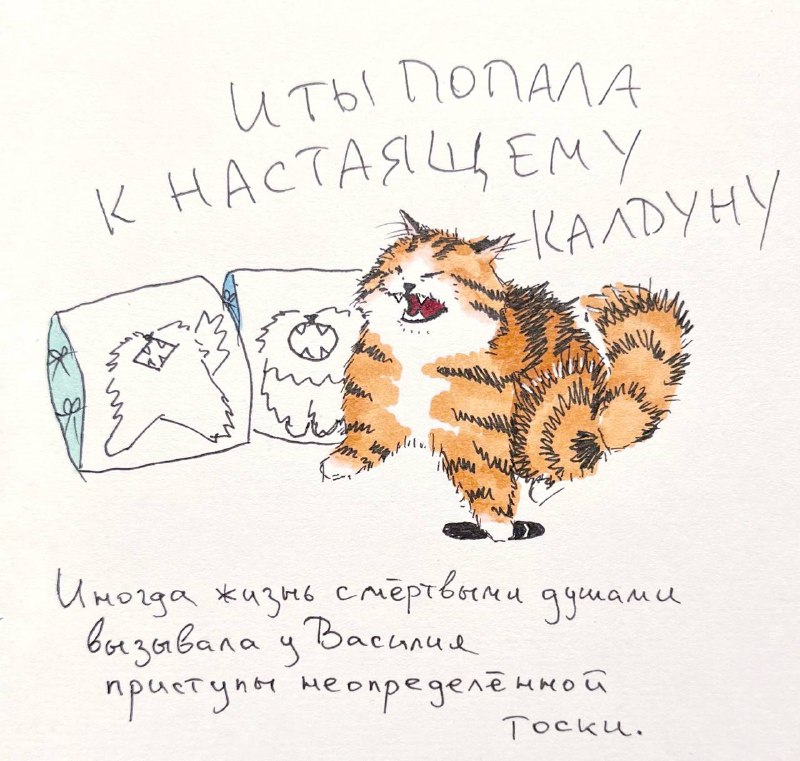 И ТЫ ПОПАЛА
К НАСТАЯЩЕМУ
КАЛДУНУ
Иногда жизнь с мёртвыми душами
вызывала у Василия
приступы неопределённой
тоски.